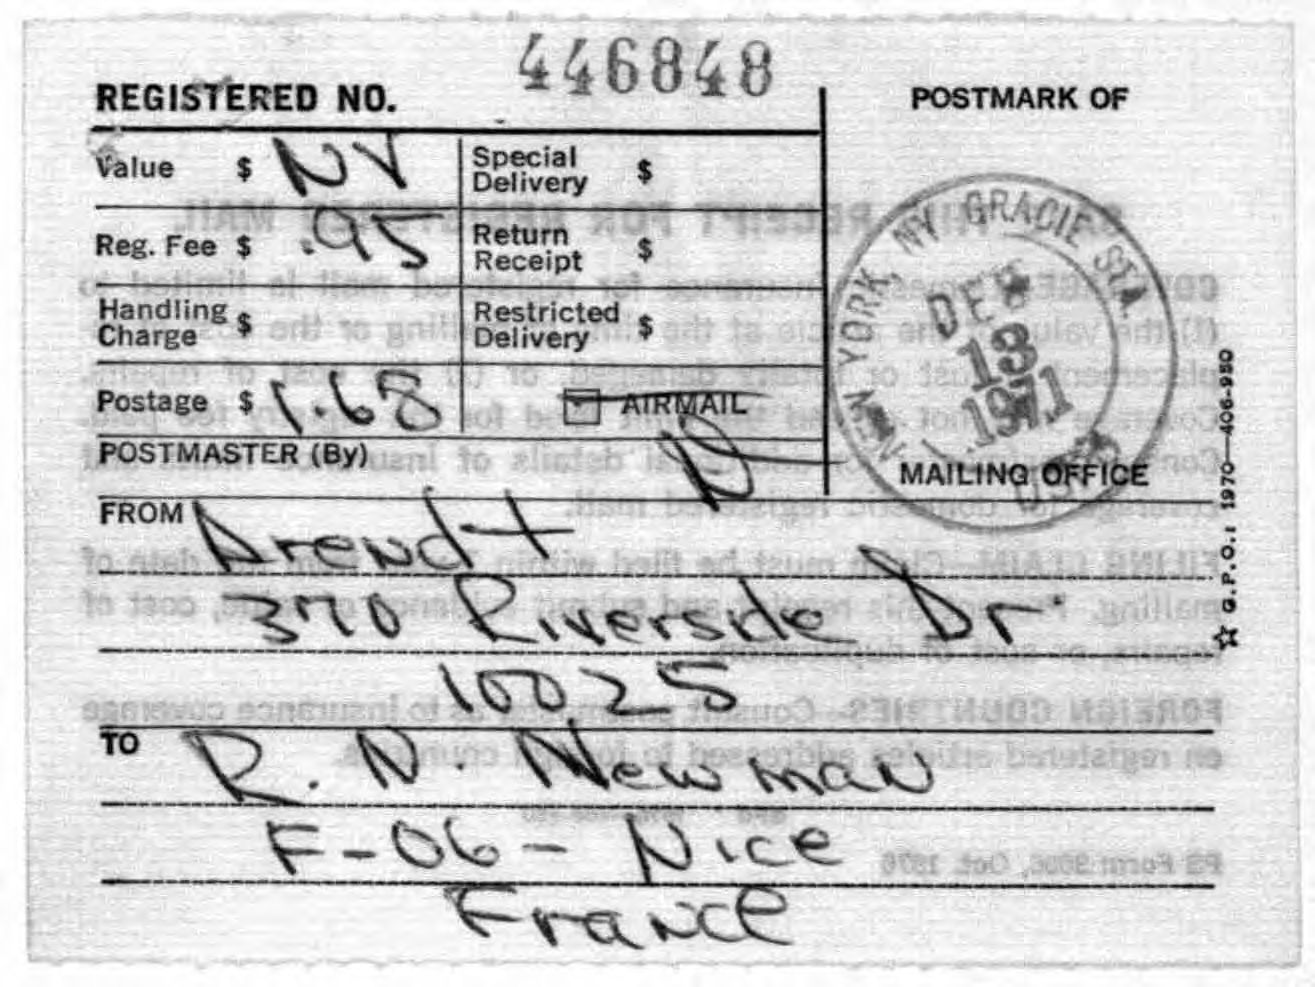 446848
REGISTERED NO.
POSTMARK OF
Value $ NV
Special Delivery $
Reg. Fee $ .95
Return Receipt $
Handling Charge $
Restricted Delivery $
Postage $ 1.68
AIRMAIL
POSTMASTER (By)
NEW YORK, NY GRACIE STA.
DEC
13
1971
USPS
MAILING OFFICE
FROM Arendt
370 Riverside Dr
10025
TO R. N. Newman
F-06- Nice
France
☆ G.P.O.: 1970—406-950